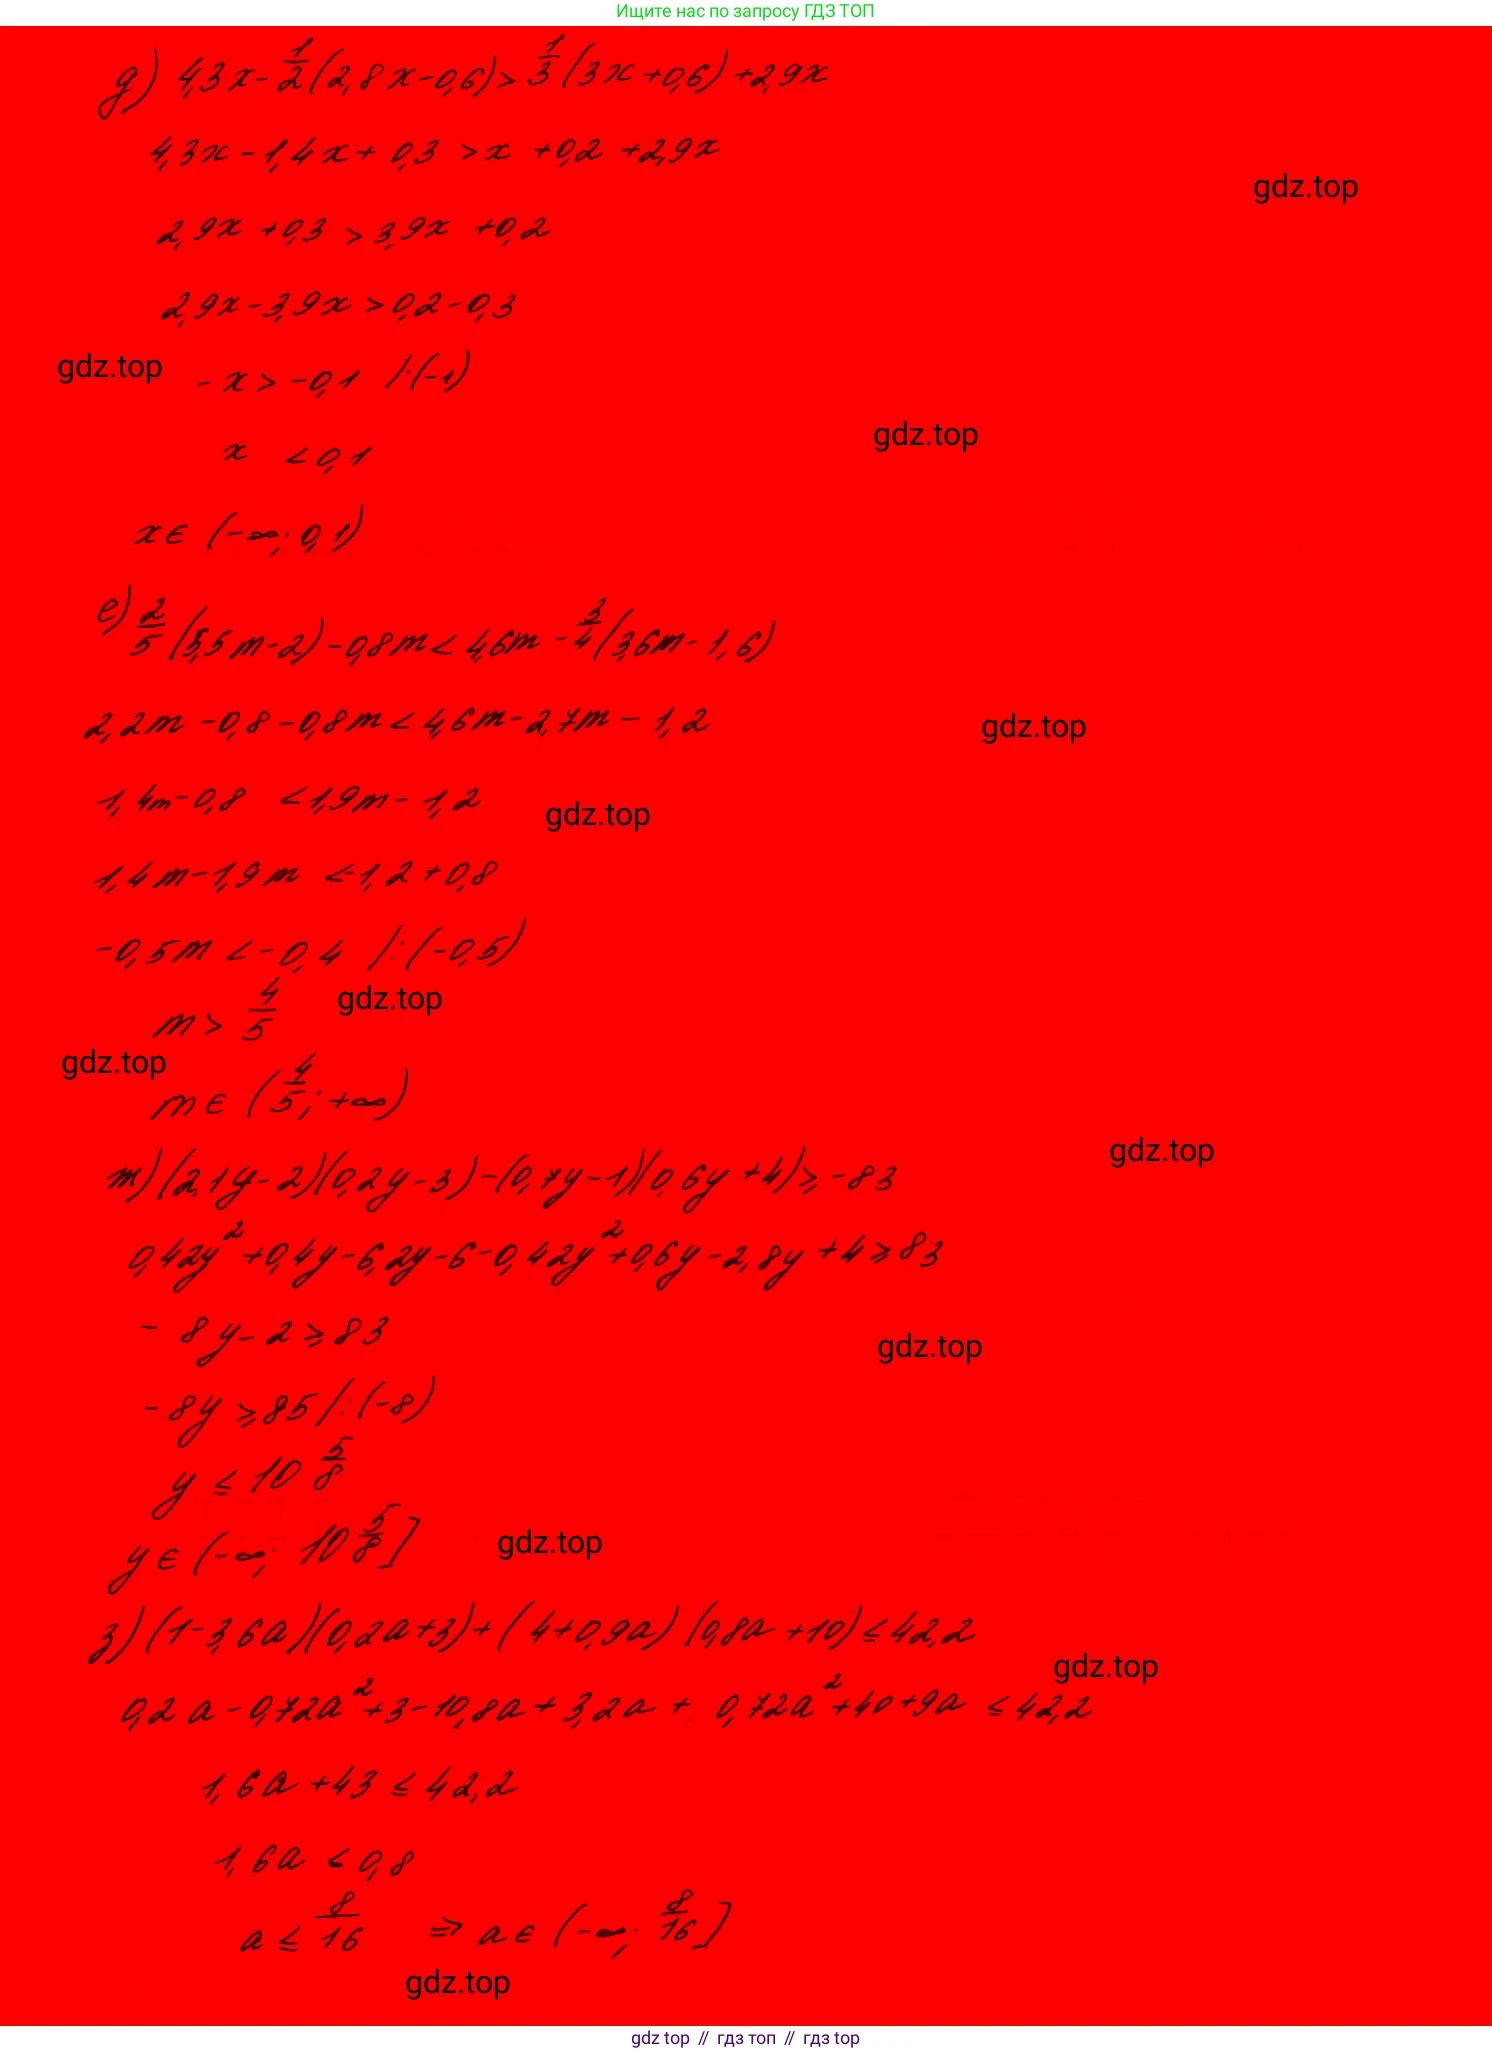 Ищите нас по запросу ГДЗ ТОП
д) 4,3x - 1/2 (2,8x - 0,6) > 1/3 (3x + 0,6) + 2,9x
4,3x - 1,4x + 0,3 > x + 0,2 + 2,9x
gdz.top
2,9x + 0,3 > 3,9x + 0,2
2,9x - 3,9x > 0,2 - 0,3
gdz.top
-x > -0,1 /:(-1)
gdz.top
x < 0,1
x ∈ (-∞; 0,1)
е) 2/5 (5,5m - 2) - 0,8m < 4,6m - 3/4 (3,6m - 1,6)
2,2m - 0,8 - 0,8m < 4,6m - 2,7m - 1,2
gdz.top
1,4m - 0,8 < 1,9m - 1,2
gdz.top
1,4m - 1,9m < -1,2 + 0,8
-0,5m < -0,4 /:(-0,5)
gdz.top
m > 4/5
gdz.top
m ∈ (4/5; +∞)
gdz.top
ж) (2,1y - 2)(0,2y - 3) - (0,7y - 1)(0,6y + 4) ≥ -83
0,42y² + 0,4y - 6,2y - 6 - 0,42y² + 0,6y - 2,8y + 4 ≥ 83
- 8y - 2 ≥ 83
gdz.top
-8y ≥ 85 /:(-8)
y ≤ 10 5/8
y ∈ (-∞; 10 5/8]
gdz.top
з) (1 - 3,6a)(0,2a + 3) + (4 + 0,9a)(0,8a + 10) ≤ 42,2
gdz.top
0,2a - 0,72a² + 3 - 10,8a + 3,2a + 0,72a² + 40 + 9a ≤ 42,2
1,6a + 43 ≤ 42,2
1,6a ≤ 0,8
a ≤ 8/16 ⇒ a ∈ (-∞; 8/16]
gdz.top
gdz top // гдз топ // gdz top